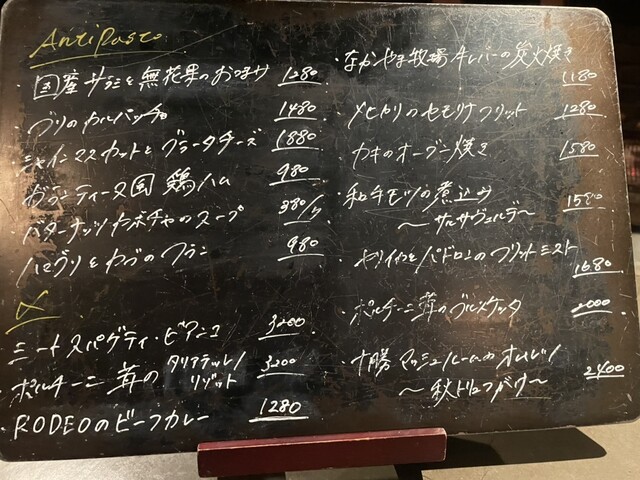 Antipasto
・国産サラミと無花果のおつまみ 1280
・ブリのカルパッチョ 1480
シャインマスカットとブラータチーズ 1880
ガランティーヌ風 鶏ハム 980
・バターナッツカボチャのスープ 380/
・ハマグリとカブのフラン 980
〆
ミートスパゲティ・ビアンコ 3200
・ポルチーニ茸のタリアテッレ/リゾット 3200
・RODEOのビーフカレー 1280
・なかやま牧場牛レバーの炭火焼き 1180
・メヒカリのセモリナフリット 1280
・カキのオーブン焼き 1580
・和牛モツの煮込み 1580
〜サルサヴェルデ〜
・ヤリイカとパドロンのフリットミスト 1680
・ポルチーニ茸のブルスケッタ 2000
・十勝マッシュルームのオムレツ 2400
〜秋トリュフがけ〜